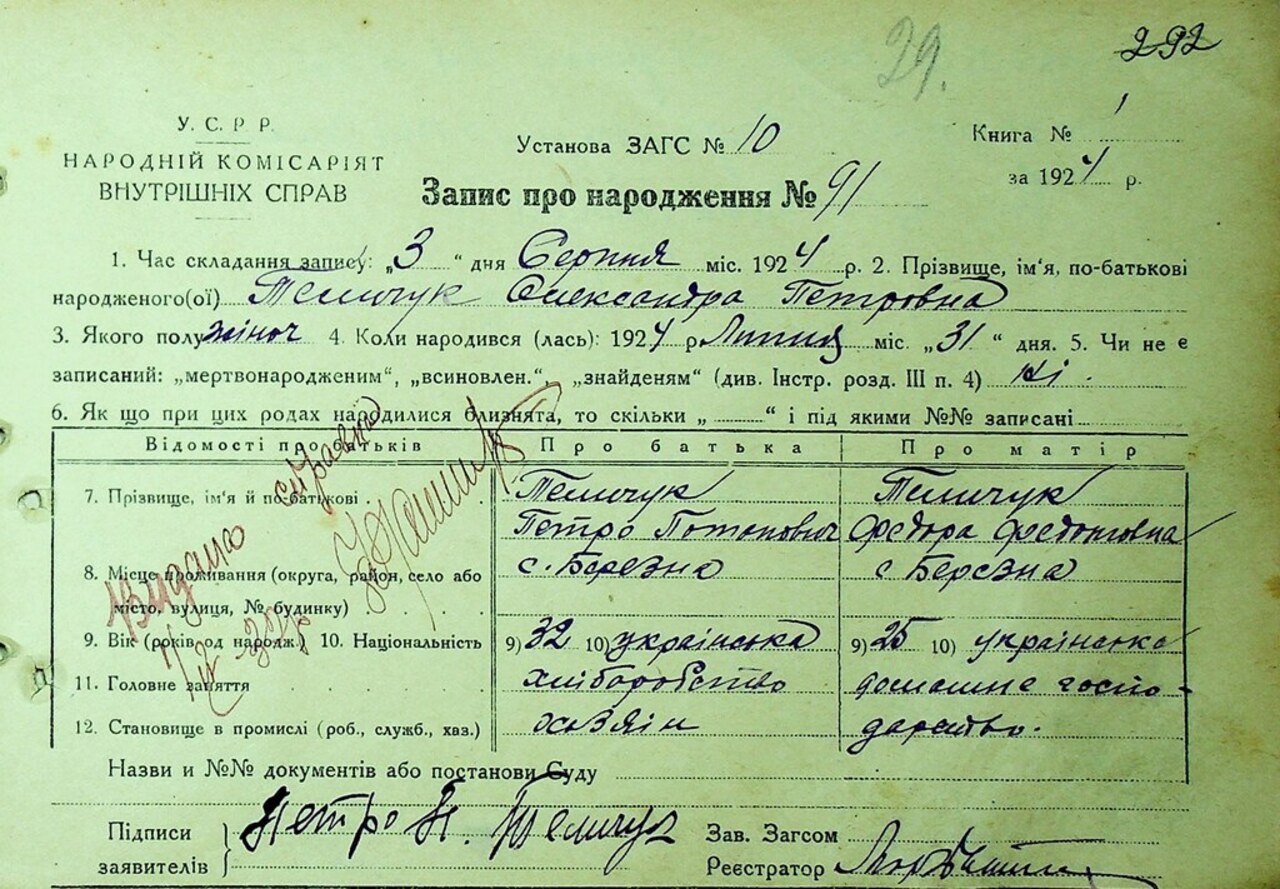 29.
292
У. С. Р. Р.
НАРОДНІЙ КОМІСАРІЯТ
ВНУТРІШНІХ СПРАВ
Установа ЗАГС № 10
Книга № 1
за 1924 р.
Запис про народження № 91
1. Час складання запису: „3“ дня Серпня міс. 1924 р. 2. Прізвище, ім'я, по-батькові
народженого(ої) Теличук Олександра Петровна
3. Якого полу жіноч 4. Коли народився (лась): 1924 р. Липня міс. „31“ дня. 5. Чи не є
записаний: „мертвонародженим“, „всиновлен.“, „знайденям“ (див. Інстр. розд. III п. 4) ні.
6. Як що при цих родах народилися близнята, то скільки „ “ і під якими №№ записані
Відомості про батьків Про батька Про матір
7. Прізвище, ім'я й по-батькові Теличук Теличук
Петро Потопович Федора
8. Місце проживання (округа, район, село або с. Березна с Березна
місто, вулиця, № будинку)
9. Вік (років од народж.) 10. Національність 9) 32 10) українська 9) 25 10) українська
11. Головне заняття хліборобство домашнє госпо-
12. Становище в промислі (роб., служб., хаз.) хозяін дарство.
Видано справка
Назви и №№ документів або постанови Суду
Підписи
заявителів
Петро П. Теличук
Зав. Загсом
Реєстратор